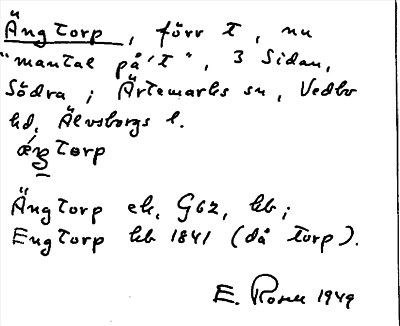 Ängtorp, förr t, nu
"mantal på 't", 3 Sidan,
Södra; Ärtemarks sn, Vedbo
hd, Älvsborgs l.
ä́ŋtorp
Ängtorp ek, G62, kb;
Engtorp kb 1841 (då torp).
E. Rosell 1949